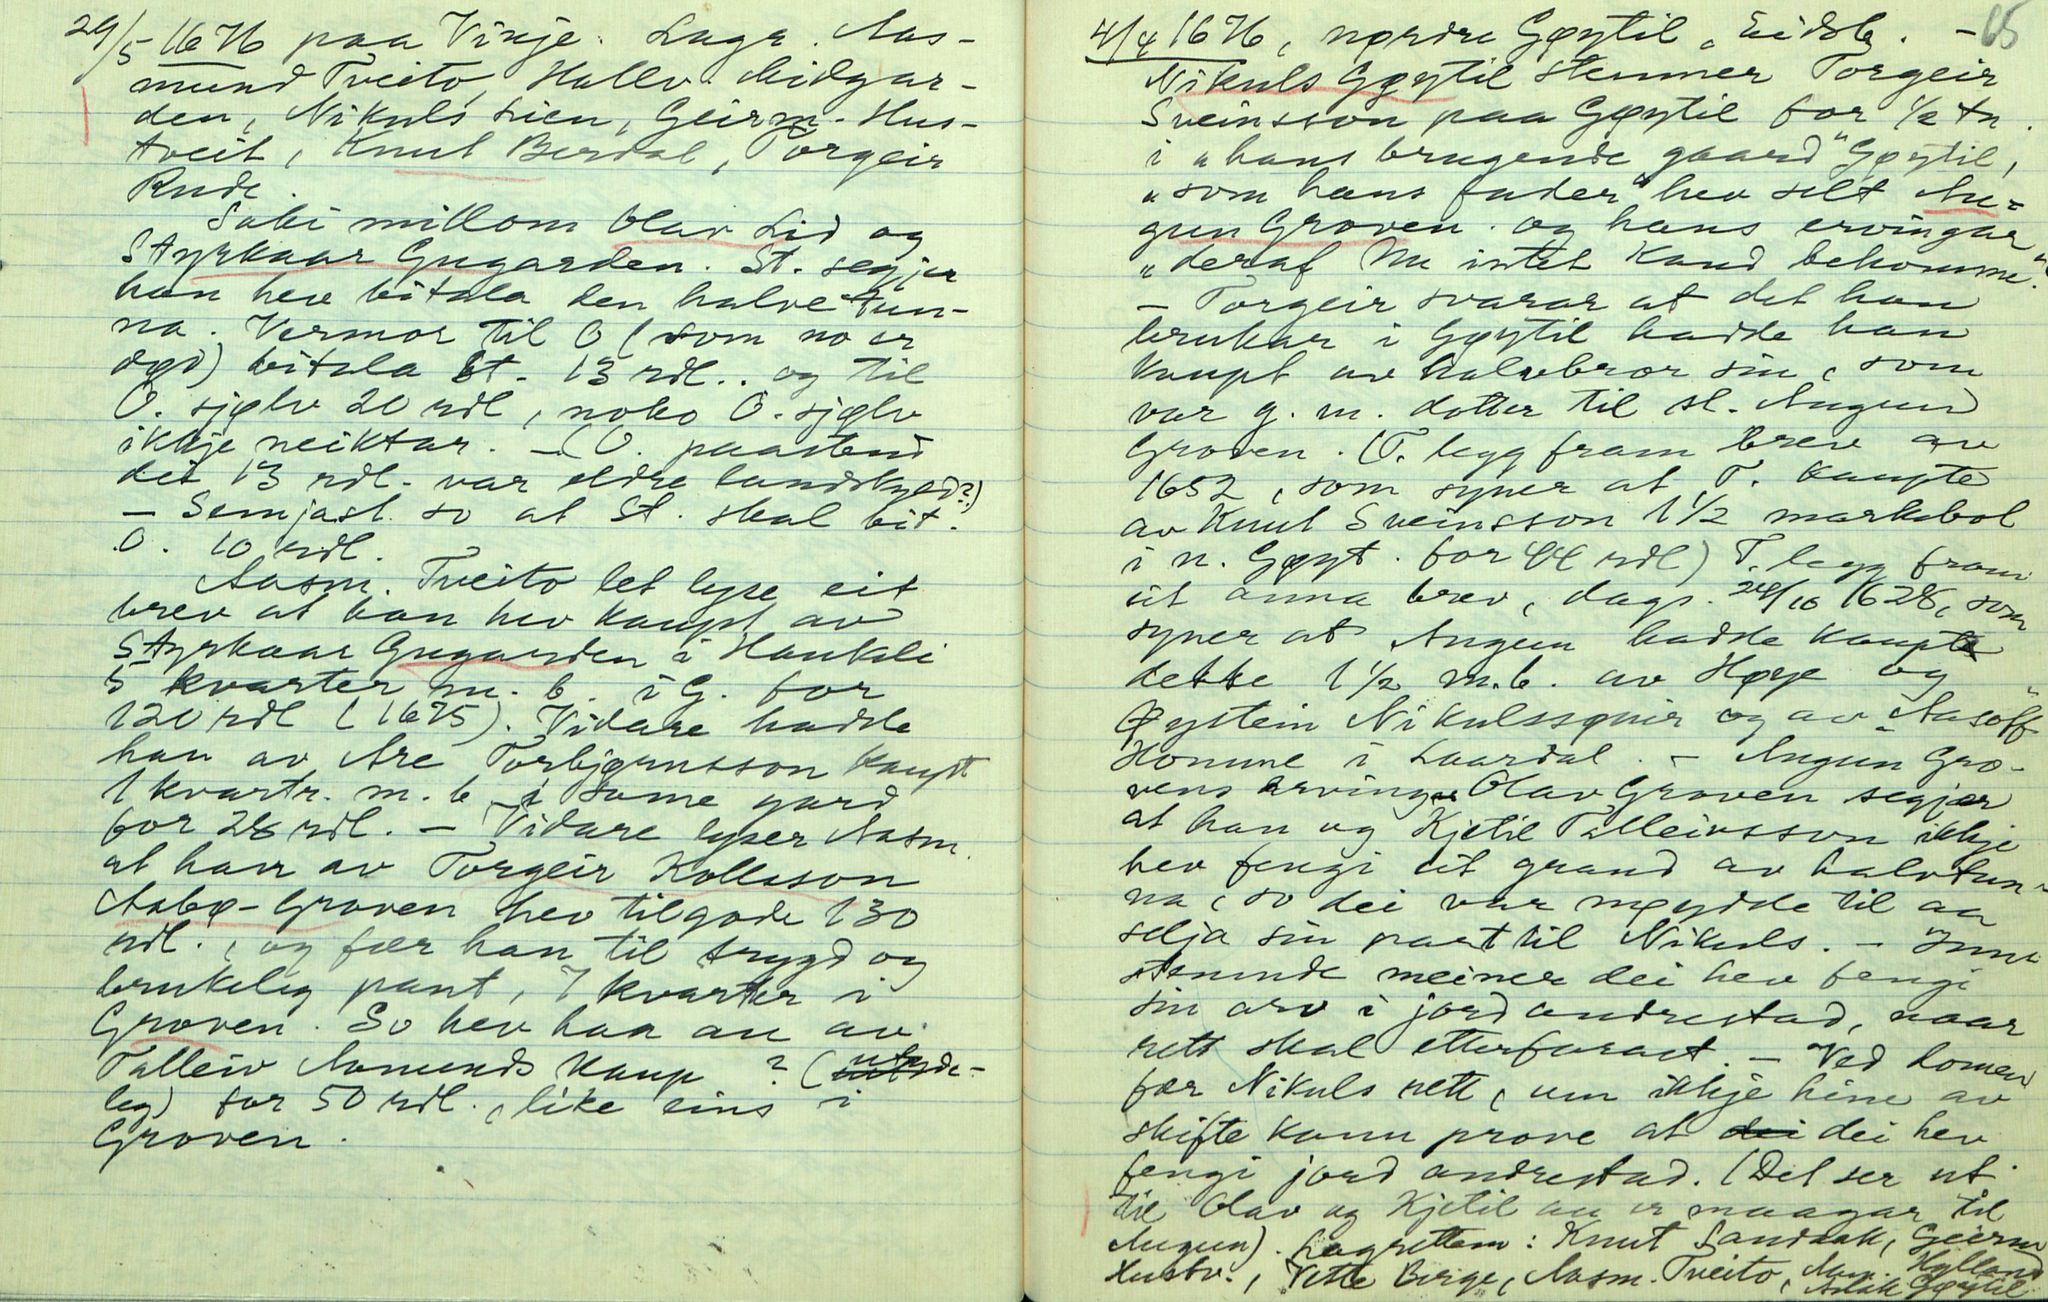 29/5 1676 paa Vinje. Lagr. Aas-
mund Tveito, Hallv. Midgar-
den, Nikuls Lien, Geirm. Hus-
tveit, Knut Berdal, Torgeir
Rude.
Saki millom Olav Lid og
Styrkaar Gugarden. St. segjer
han hev bitala den halve tun-
na. Vermor til O (som no er
død) bitala St. 13 rdl.. og til
O. sjølv 20 rdl, noko O. sjølv
ikkje neiktar. – (O. paastend
dei 13 rdl. var eldre landskyld?)
– Semjast so at St. skal bit.
O. 10 rdl.
Aasm. Tveito let lyse eit
brev at han hev kaupt av
Styrkaar Gugarden i Haukeli
5 kvarter m. b. i G. for
120 rdl (1675). Vidare hadde
han av Are Torbjørnsson kaupt
1 kvartr. m. b. i same gard
for 28 rdl. – Vidare lyser Aasm.
at han av Torgeir Kollsson
Aabø-Groven hev tilgode 130
rdl., og fær han til trygd og
brukeleg pant, 7 kvarter i
Groven. So hev han au av
Talleiv Aamunds kaup ? (
leg) for 50 rdl., like eins i
Groven.
65
4/4 1676, nørdre Gøytil, Eidsb. –
Nikuls Gøytil stemner Torgeir
Sveinsson paa Gøytil for 1/2 tn.
i "hans brugende gaard" Gøytil,
"som hans fader" hev selt Au-
gun Groven. og hans ervingar
"deraf Nu intet Kand bekomme."
– Torgeir svarar at det han
brukar i Gøytil hadde han
kaupt av halvbror sin, som
var g. m. dotter til sl. Augun
Groven. (T. legg fram brev av
1652, som syner at T. kaupte
av Knut Sveinsson 1 1/2 markebol
i n. Gøyt. for 44 rdl) T. legg fram
eit anna brev, dags. 24/10 1628, som
syner at Augun hadde kaupt
dette 1 1/2 m.b. av Høye og
Øystein Nikulssønir og av "Aasoff"
Homme i Laardal. – Augun Gro-
vens arving Olav Groven segjer
at han og Kjetil Talleivsson ikkje
hev fengi eit grand av halvtun-
na, so dei var nøydde til aa
selja sin part til Nikuls. – Inn-
stemnde meiner dei hev fengi
sin arv i jord andrestad, naar
rett skal etterfarast. – Ved domen
fær Nikuls rett, um ikkje hine av
skifte kann prove at dei dei hev
fengi jord andrestad. (Det ser ut
til Olav og Kjetil au er maagar til
Augun). Lagrettem: Knut Sandaak, Geirm
Hustv., Vetle Berge, Aasm. Tveito, Hylland
Aslak Gøytil